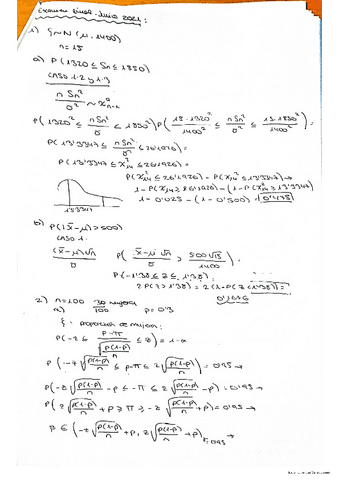 Examen final Junio 2021:
1) ξ ~ N(μ, 1400)
n = 15
a) P(1320 ≤ Sn ≤ 1850)
caso 1.2 y 1.3
n Sn² / σ² ~ χ²n-1
P(1320² ≤ n Sn² / σ ≤ 1850²) P(15·1320² / 1400² ≤ n Sn² / σ² ≤ 15·1850² / 1400²) =
P(13'3347 ≤ n Sn² / σ² ≤ 26'1926) =
P(13'3347 ≤ χ²14 ≤ 26'1926) =
P(χ²14 ≤ 26'1926) - P(χ²14 ≤ 13'3347) →
1 - P(χ²14 ≥ 26'1926) - (1 - P(χ²14 ≥ 13'3347)
1 - 0'025 - (1 - 0'500) = 0'475
13'3347
b) P(|x̄ - μ| > 500)
caso 1.
(x̄ - μ)√n / σ P(x̄ - μ √n / σ > 500√15 / 1400) =
P(-1'38 ≤ Z ≤ 1'38) =
2P(Z > 1'38) = 2(1 - P(Z < 1'38)) =
0'1676
2) n = 100 30/100 mujeres
a) p = 0'3
ξ: proporción de mujeres
P(-z ≤ p - π / √(p(1-p)/n) ≤ z) = 1 - α
P(-z√(p(1-p)/n) ≤ p - π ≤ z√(p(1-p)/n)) = 0'95 →
P(-z√(p(1-p)/n) - p ≤ -π ≤ z√(p(1-p)/n) - p) = 0'95 →
P(z√(p(1-p)/n) + p ≥ π ≥ -z√(p(1-p)/n) + p) = 0'95 →
p ∈ (-z√(p(1-p)/n) + p, z√(p(1-p)/n) + p)0'95 →